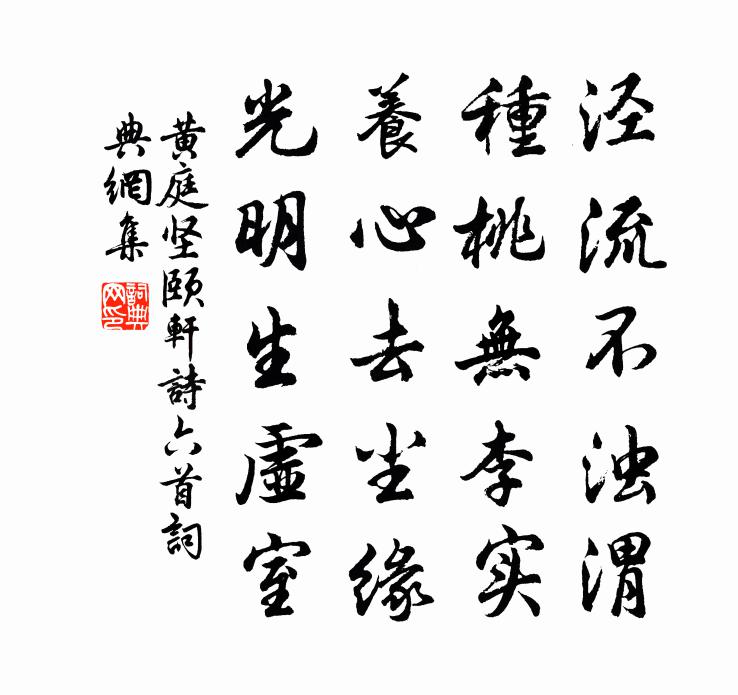 泾流不浊渭
種桃無李实
養心去尘缘
光明生虚室
黄庭坚颐軒詩六首詞
典網集
詞典
网印